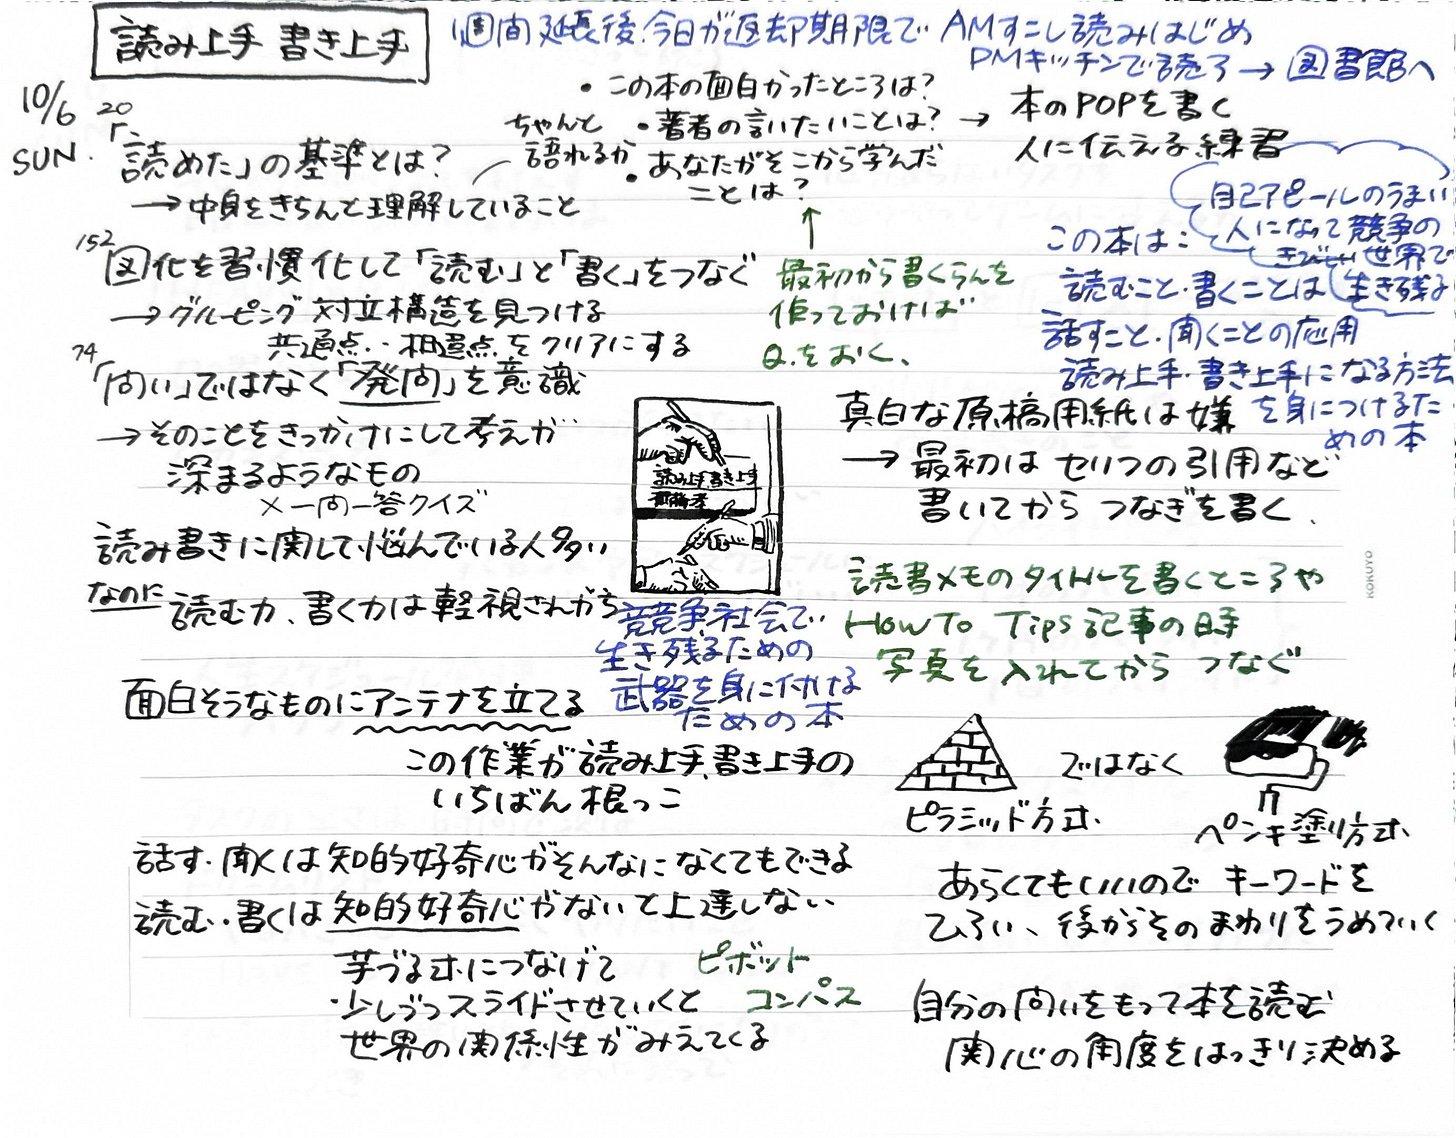 読み上手 書き上手
1週間延長後、今日が返却期限で AMすこし読みはじめ
PMキッチンで読了 → 図書館へ
10/6
SUN.
20
「読めた」の基準とは?
→ 中身をきちんと理解していること
ちゃんと
語れるか
・この本の面白かったところは?
・著者の言いたいことは? →
・あなたがそこから学んだ
ことは?
本のPOPを書く
人に伝える練習
↑
最初から書くらんを
作っておけば
Q.をおく、
自己アピールのうまい
人になって競争の
きびしい世界で
生き残る
この本は:
読むこと・書くことは
話すこと・聞くことの応用
読み上手・書き上手になる方法
を身につけるた
めの本
152
図化を習慣化して「読む」と「書く」をつなぐ
→ グルーピング 対立構造を見つける
共通点・・相違点をクリアにする
74
「問い」ではなく「発問」を意識
→ そのことをきっかけにして考えが
深まるようなもの
×一問一答クイズ
読み上手書き上手
齋藤孝
真白な原稿用紙は嫌
→ 最初は セリフの引用など
書いてから つなぎを書く.
読み書きに関して悩んでいる人多い
なのに 読む力、書く力は軽視されがち
競争社会で
生き残るための
武器を身に付ける
ための本
読書メモのタイトルを書くところや
HOW TO Tips記事の時
写真を入れてから つなぐ
KOKUYO
面白そうなものにアンテナを立てる
この作業が読み上手、書き上手の
いちばん根っこ
ピラミッド方式.
ではなく
ペンキ塗り方式.
話す・聞くは知的好奇心がそんなになくてもできる
読む・書くは知的好奇心がないと上達しない
あらくてもいいので キーワードを
ひろい、後からそのまわりをうめていく
芋づる式につなげて
・少しずつスライドさせていくと
世界の関係性がみえてくる
ピボット
コンパス
自分の問いをもって本を読む
関心の角度をはっきり決める